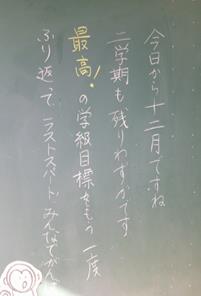 今日から十二月ですね
二学期も残りわずかです
最高!の学級目標をもう一度
ふり返って、ラストスパート、みんなでがん